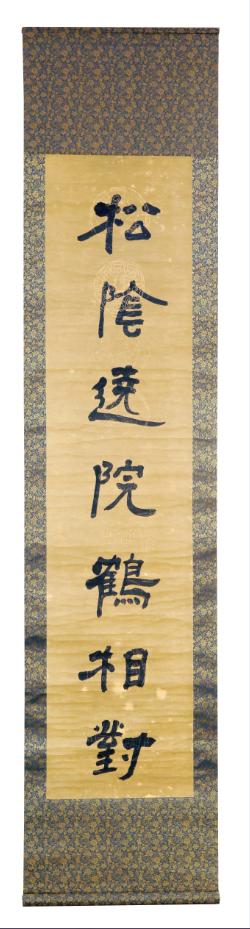 松陰遶院鶴相對